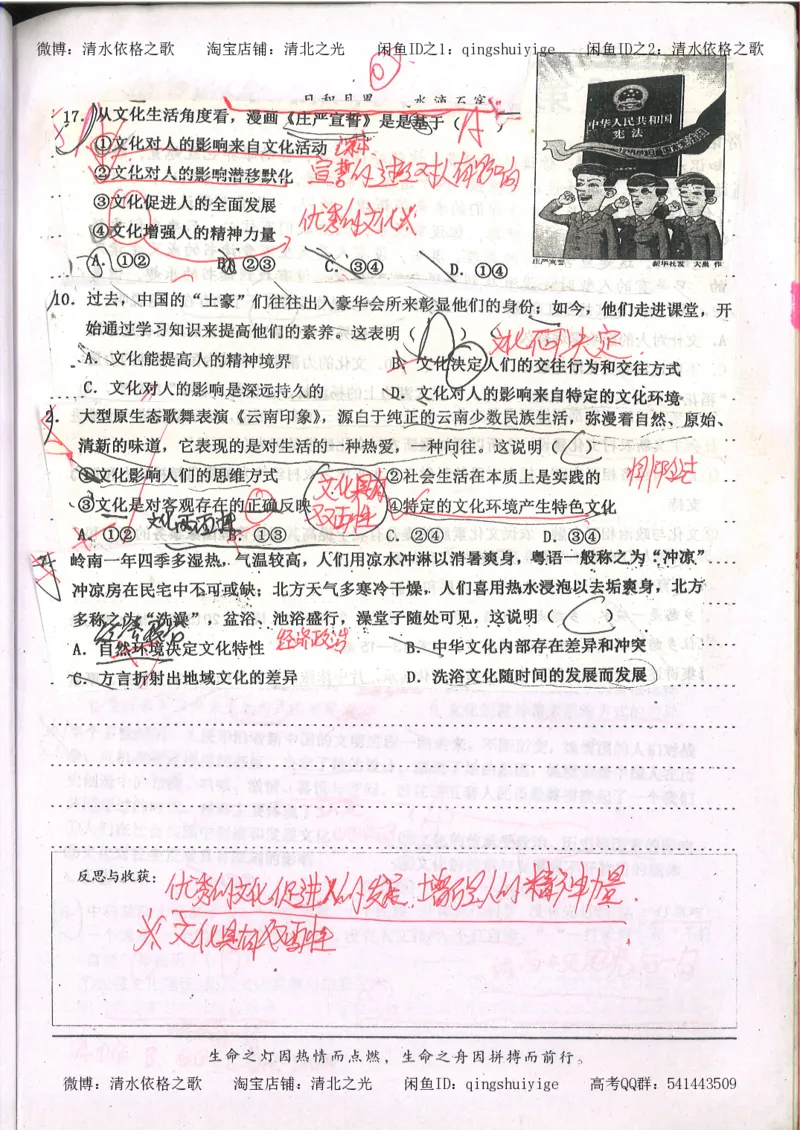 微博：清水依格之歌 淘宝店铺：清北之光 闲鱼ID之1：qingshuiyige 闲鱼ID之2：清水依格之歌
17. 从文化生活角度看，漫画《庄严宣誓》是是基于（ A ）
中华人民共和国
宪法
①文化对人的影响来自文化活动
②文化对人的影响潜移默化 宣誓的过程对人有影响
③文化促进人的全面发展
优秀的文化
④文化增强人的精神力量
庄严宣誓 新华社发 大巢 作
A. ①② B. ②③ C. ③④ D. ①④
10. 过去，中国的“土豪”们往往出入豪华会所来彰显他们的身份；如今，他们走进课堂，开
始通过学习知识来提高他们的素养。这表明（ ）
文化 决定
A. 文化能提高人的精神境界 B. 文化决定人们的交往行为和交往方式
C. 文化对人的影响是深远持久的 D. 文化对人的影响来自特定的文化环境
2. 大型原生态歌舞表演《云南印象》，源自于纯正的云南少数民族生活，弥漫着自然、原始、
清新的味道，它表现的是对生活的一种热爱，一种向往。这说明（ ）
①文化影响人们的思维方式 ②社会生活在本质上是实践的
文化具有
双面性
③文化是对客观存在的正确反映 ④特定的文化环境产生特色文化
A. ①② B. ①③ C. ②④ D. ③④
岭南一年四季多湿热，气温较高，人们用凉水冲淋以消暑爽身，粤语一般称之为“冲凉”
冲凉房在民宅中不可或缺；北方天气多寒冷干燥，人们喜用热水浸泡以去垢爽身，北方
多称之为“洗澡”，盆浴、池浴盛行，澡堂子随处可见，这说明（ ）
经济政治
A. 自然环境决定文化特性 B. 中华文化内部存在差异和冲突
C. 方言折射出地域文化的差异 D. 洗浴文化随时间的发展而发展
反思与收获：
优秀的文化促进人的发展，增强人的精神力量.
※ 文化具有双面性
生命之灯因热情而点燃，生命之舟因拼搏而前行。
微博：清水依格之歌 淘宝店铺：清北之光 闲鱼ID：qingshuiyige 高考QQ群：541443509